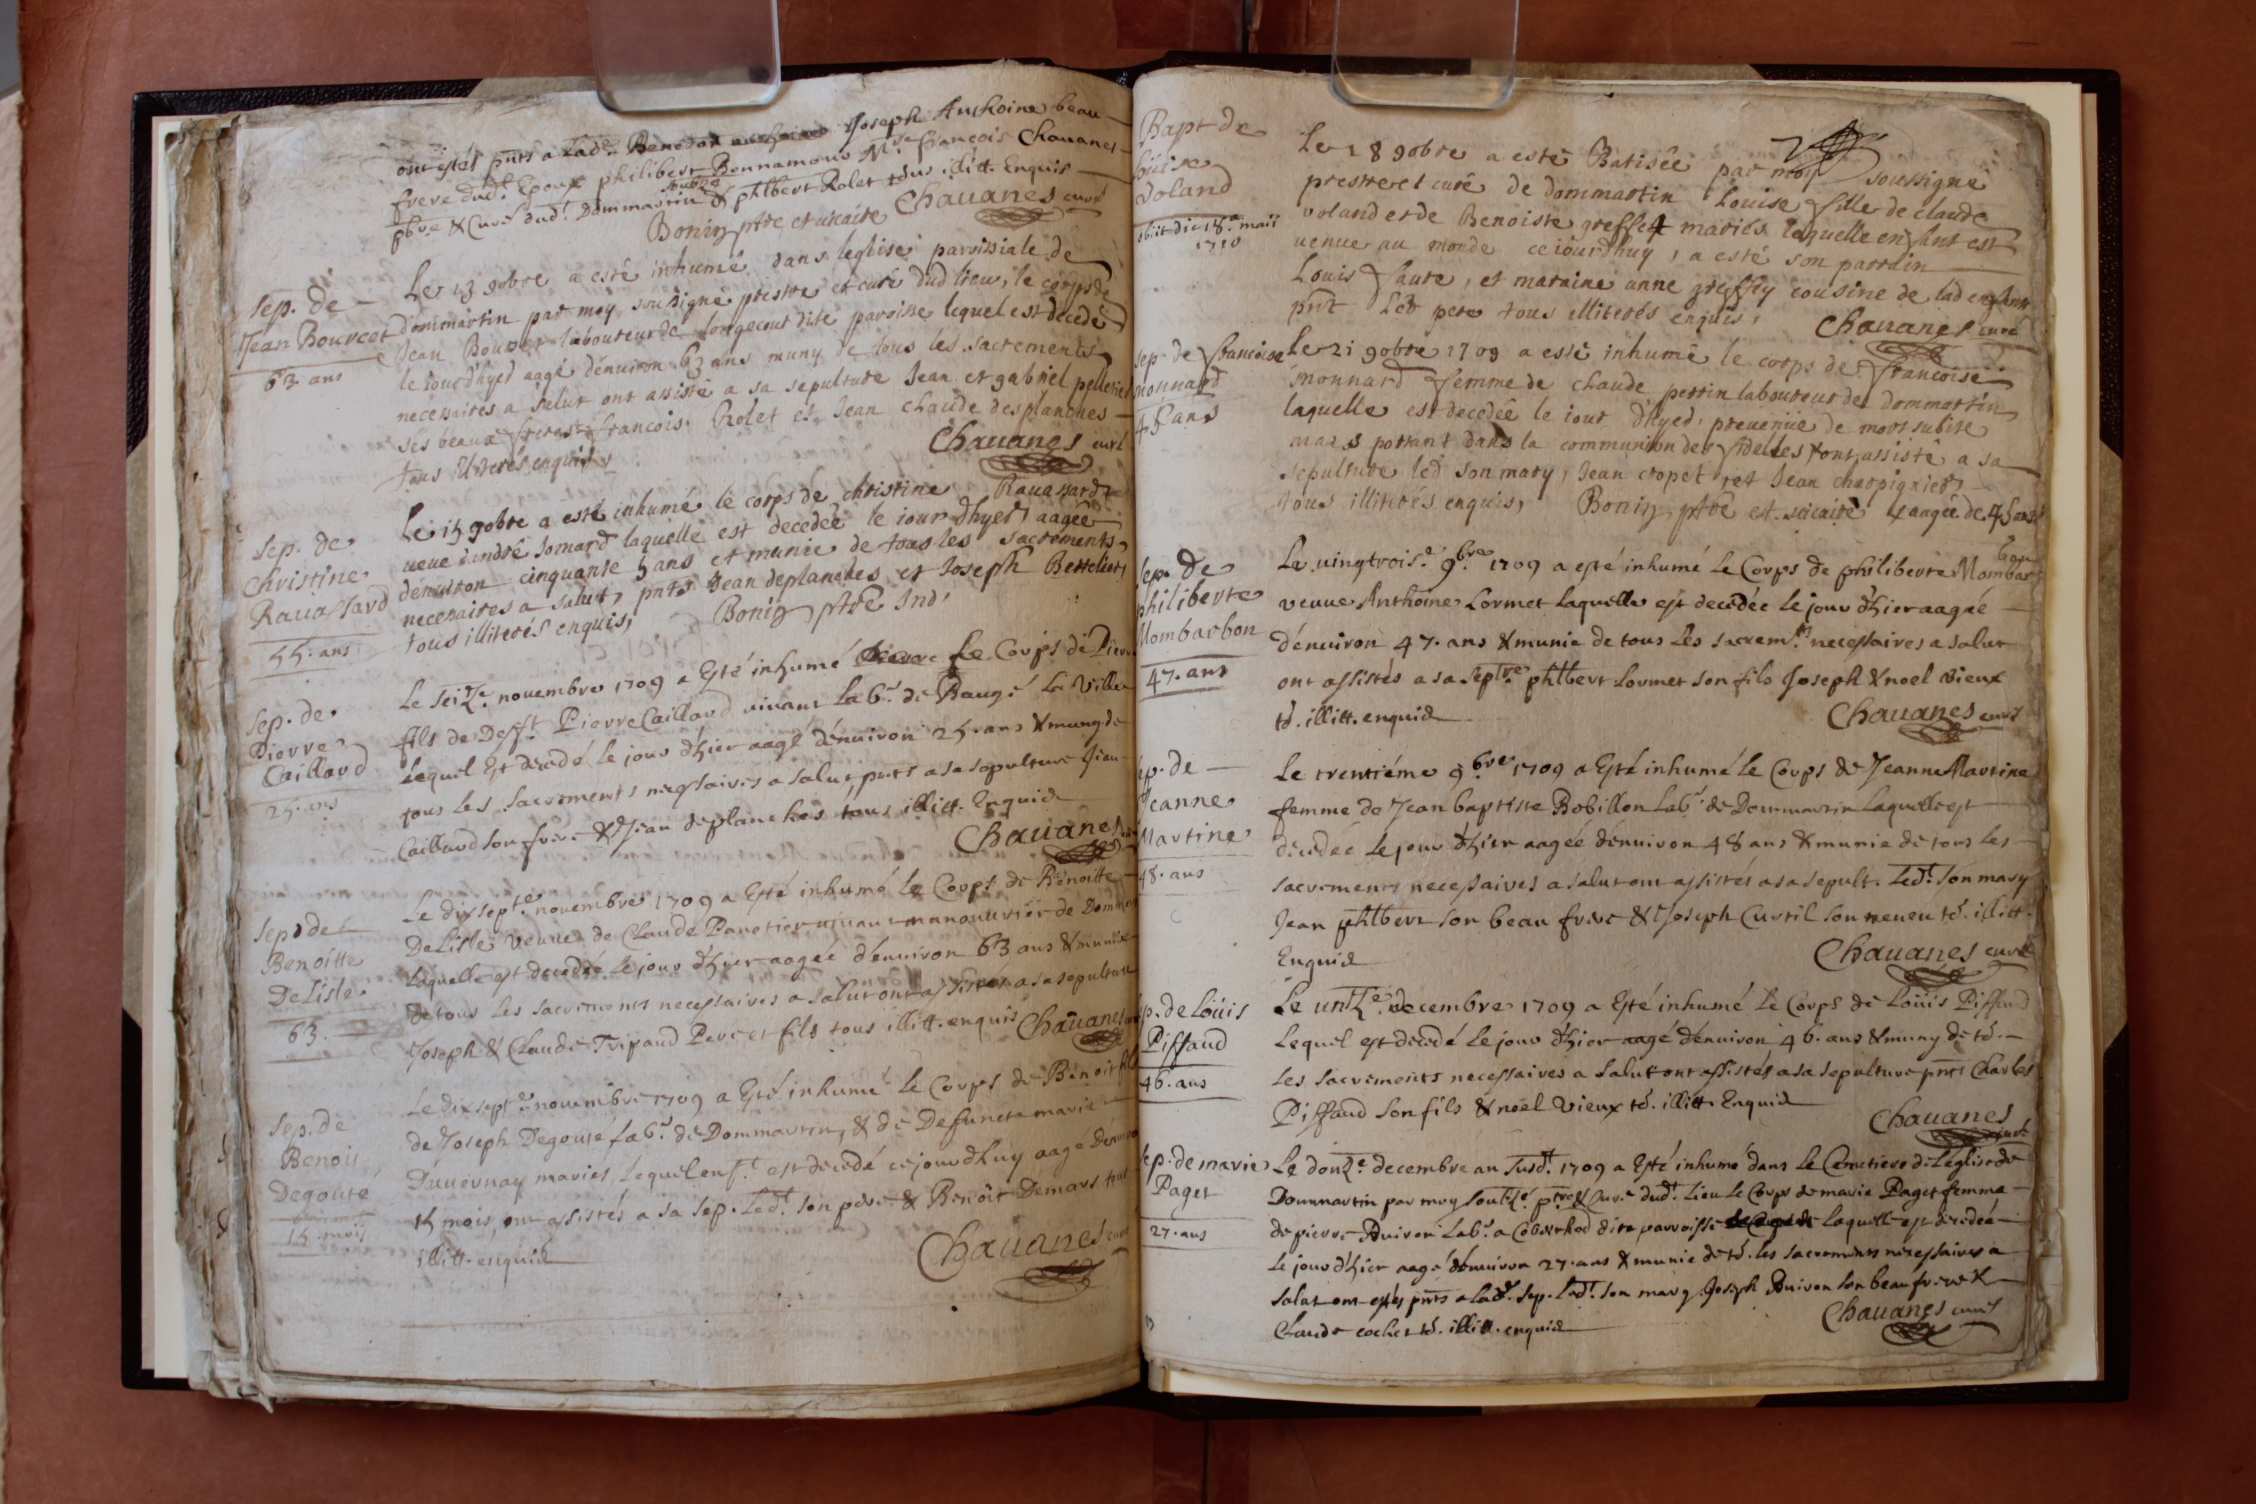 ont estés pnts a lad.e Joseph Anthoine beau
frere dud.t Epoux philibert Bonnamour M.re françois Chauanes
pbre & Curé dud.t Dommartin & phlbert Rolet tous illitt. Enquis
Bonin ptre et uicaire Chauanes curé
Sep. de
Jean Bourcet
63 ans
Le 13 9obre a esté inhumé dans leglise parroissiale de
dommartin par moy soubsigné prestre et curé dud lieu, le corps de
Jean laboureur de dite paroisse lequel est decedé
le iour d'hyed aagé dénuiron 63 ans muny de tous les sacrements
necessaires a salut ont assisté a sa sepulture Jean et gabriel
ses beaux freres francois Rolet et Jean claude desplanches
tous illiterés enquis Chauanes curé
Sep. de
Christine
Rauassard
55. ans
Le 15 9obre a esté inhumé le corps de christine Rauassard
ueue dandré Somard laquelle est decedée le iour dhyed aagée
dénuiron cinquante 5 ans et munie de tous les sacrements
necessaires a salut, pnts Jean deplanches et Joseph Bertelier
tous illiterés enquis, Bonin ptre
Sep. de
Pierre
Caillard
25. ans
Le seiz.e nouembre 1709 a Esté inhumé Le Corps de Pierre
fils de Deff.t Pierre Caillard viuant lab.r de Baugé la Ville
Lequel Est decedé le jour d'hier aagé dénuiron 25. ans & muny de
tous les sacrements necessaires a salut, pnts a sa sepulture Jean
Caillard son frere & Jean deplanches tous illitt. Enquis
Chauanes
Sep. de
Benoitte
DeLisle
63.
Le dixsept.e nouembre 1709 a Esté inhumé le Corps de Benoitte
DeLisle veuue de Claude Panetier uiuant manouurier de
Laquelle est decedée le jour d'hier aagée d'enuiron 63 ans & munie
de tous les sacrements necessaires a salut ont assistés a sa sepulture
Joseph & Claude Tripaud Pere et fils tous illitt. enquis Chauanes
Sep. de
Benoit
Degouté
15. mois
Le dixsept.e nouembre 1709 a Esté inhumé le Corps de Benoit fils
de Joseph Degouté lab.r de Dommartin, & de Defuncte marie
Dauuernay mariés lequel enf.t est decedé ce jourdhuy aagé
15 mois, ont assistés a sa sep. led.t son pere & Benoit Demars
illitt. enquis Chauanes curé
Bapt de
Loüise
Voland
obiit die 18.a maii
1710
Le 28 9obre a esté Batisée par moy soussigné
prestre et curé de dommartin Louise fille de claude
voland et de Benoiste greffet mariés laquelle enfant est
uenue au monde ceiourdhuy, a esté son parrain
Louis faure, et maraine anne cousine de lad enfant
pnt Led pere tous illiterés enquis, Chauanes curé
Sep. de francoise
Monnard
45 ans
Le 21 9obre 1709 a esté inhumé le corps de francoise
monnard femme de claude perrin laboureur de dommartin
laquelle est decedée le iour dhyed, preuenüe de mort subite
mais portant dans la communion des fidelles ont assisté a sa
sepulture led son mary, Jean cropet et Jean charpignier
tous illiterés enquis, Bonin ptre et uicaire aagée de 45 ans
Sep. de
philiberte
Mombarbon
47. ans
Le uingtrois.e 9bre 1709 a esté inhumé Le Corps de philiberte Mombarbon
veuue Anthoine Lormet laquelle est decedée le jour d'hier aagée
dénuiron 47. ans & munie de tous les sacrem.ts necessaires a salut
ont assistés a sa septre phlbert Lormet son fils Joseph & noel vieux
ts. illitt. enquis Chauanes curé
Sep. de
Jeanne
Martine
48. ans
Le trentiéme 9bre 1709 a Esté inhumé le Corps de Jeanne Martine
femme de Jean baptiste Bobillon Lab.r de Dommartin Laquelle est
decedée le jour d'hier aagée denuiron 48 ans & munie de tous les
sacrements necessaires a salut ont assistés a sa sepult. led.t son mary
Jean phlbert son beau frere & Joseph Curtil son neueu ts. illitt.
Enquis Chauanes curé
Sep. de Loüis
Piffaud
46. ans
Le unz.e decembre 1709 a Esté inhumé le Corps de Loüis Piffaud
Lequel est decedé le jour d'hier aagé dénuiron 46. ans & muny de ts.
les sacrements necessaires a salut ont assistés a sa sepulture pnts Charles
Piffaud son fils & noël vieux ts. illitt. Enquis
Chauanes curé
Sep. de marie
Paget
27. ans
Le douz.e decembre an susd.t 1709 a Esté inhumé dans le Cemetiere de l'église de
Dommartin par moy soubz.é ptre & Curé dud.t Lieu le Corps de marie Paget femme
de pierre Lab.r a dite parroisse laquelle est decedée
le jour d'hier aagé dénuiron 27. ans & munie de ts. les sacrements necessaires a
salut ont estés pnts a lad. sep. led.t son mary Joseph son beau frere &
Claude cochet ts. illitt. enquis Chauanes curé